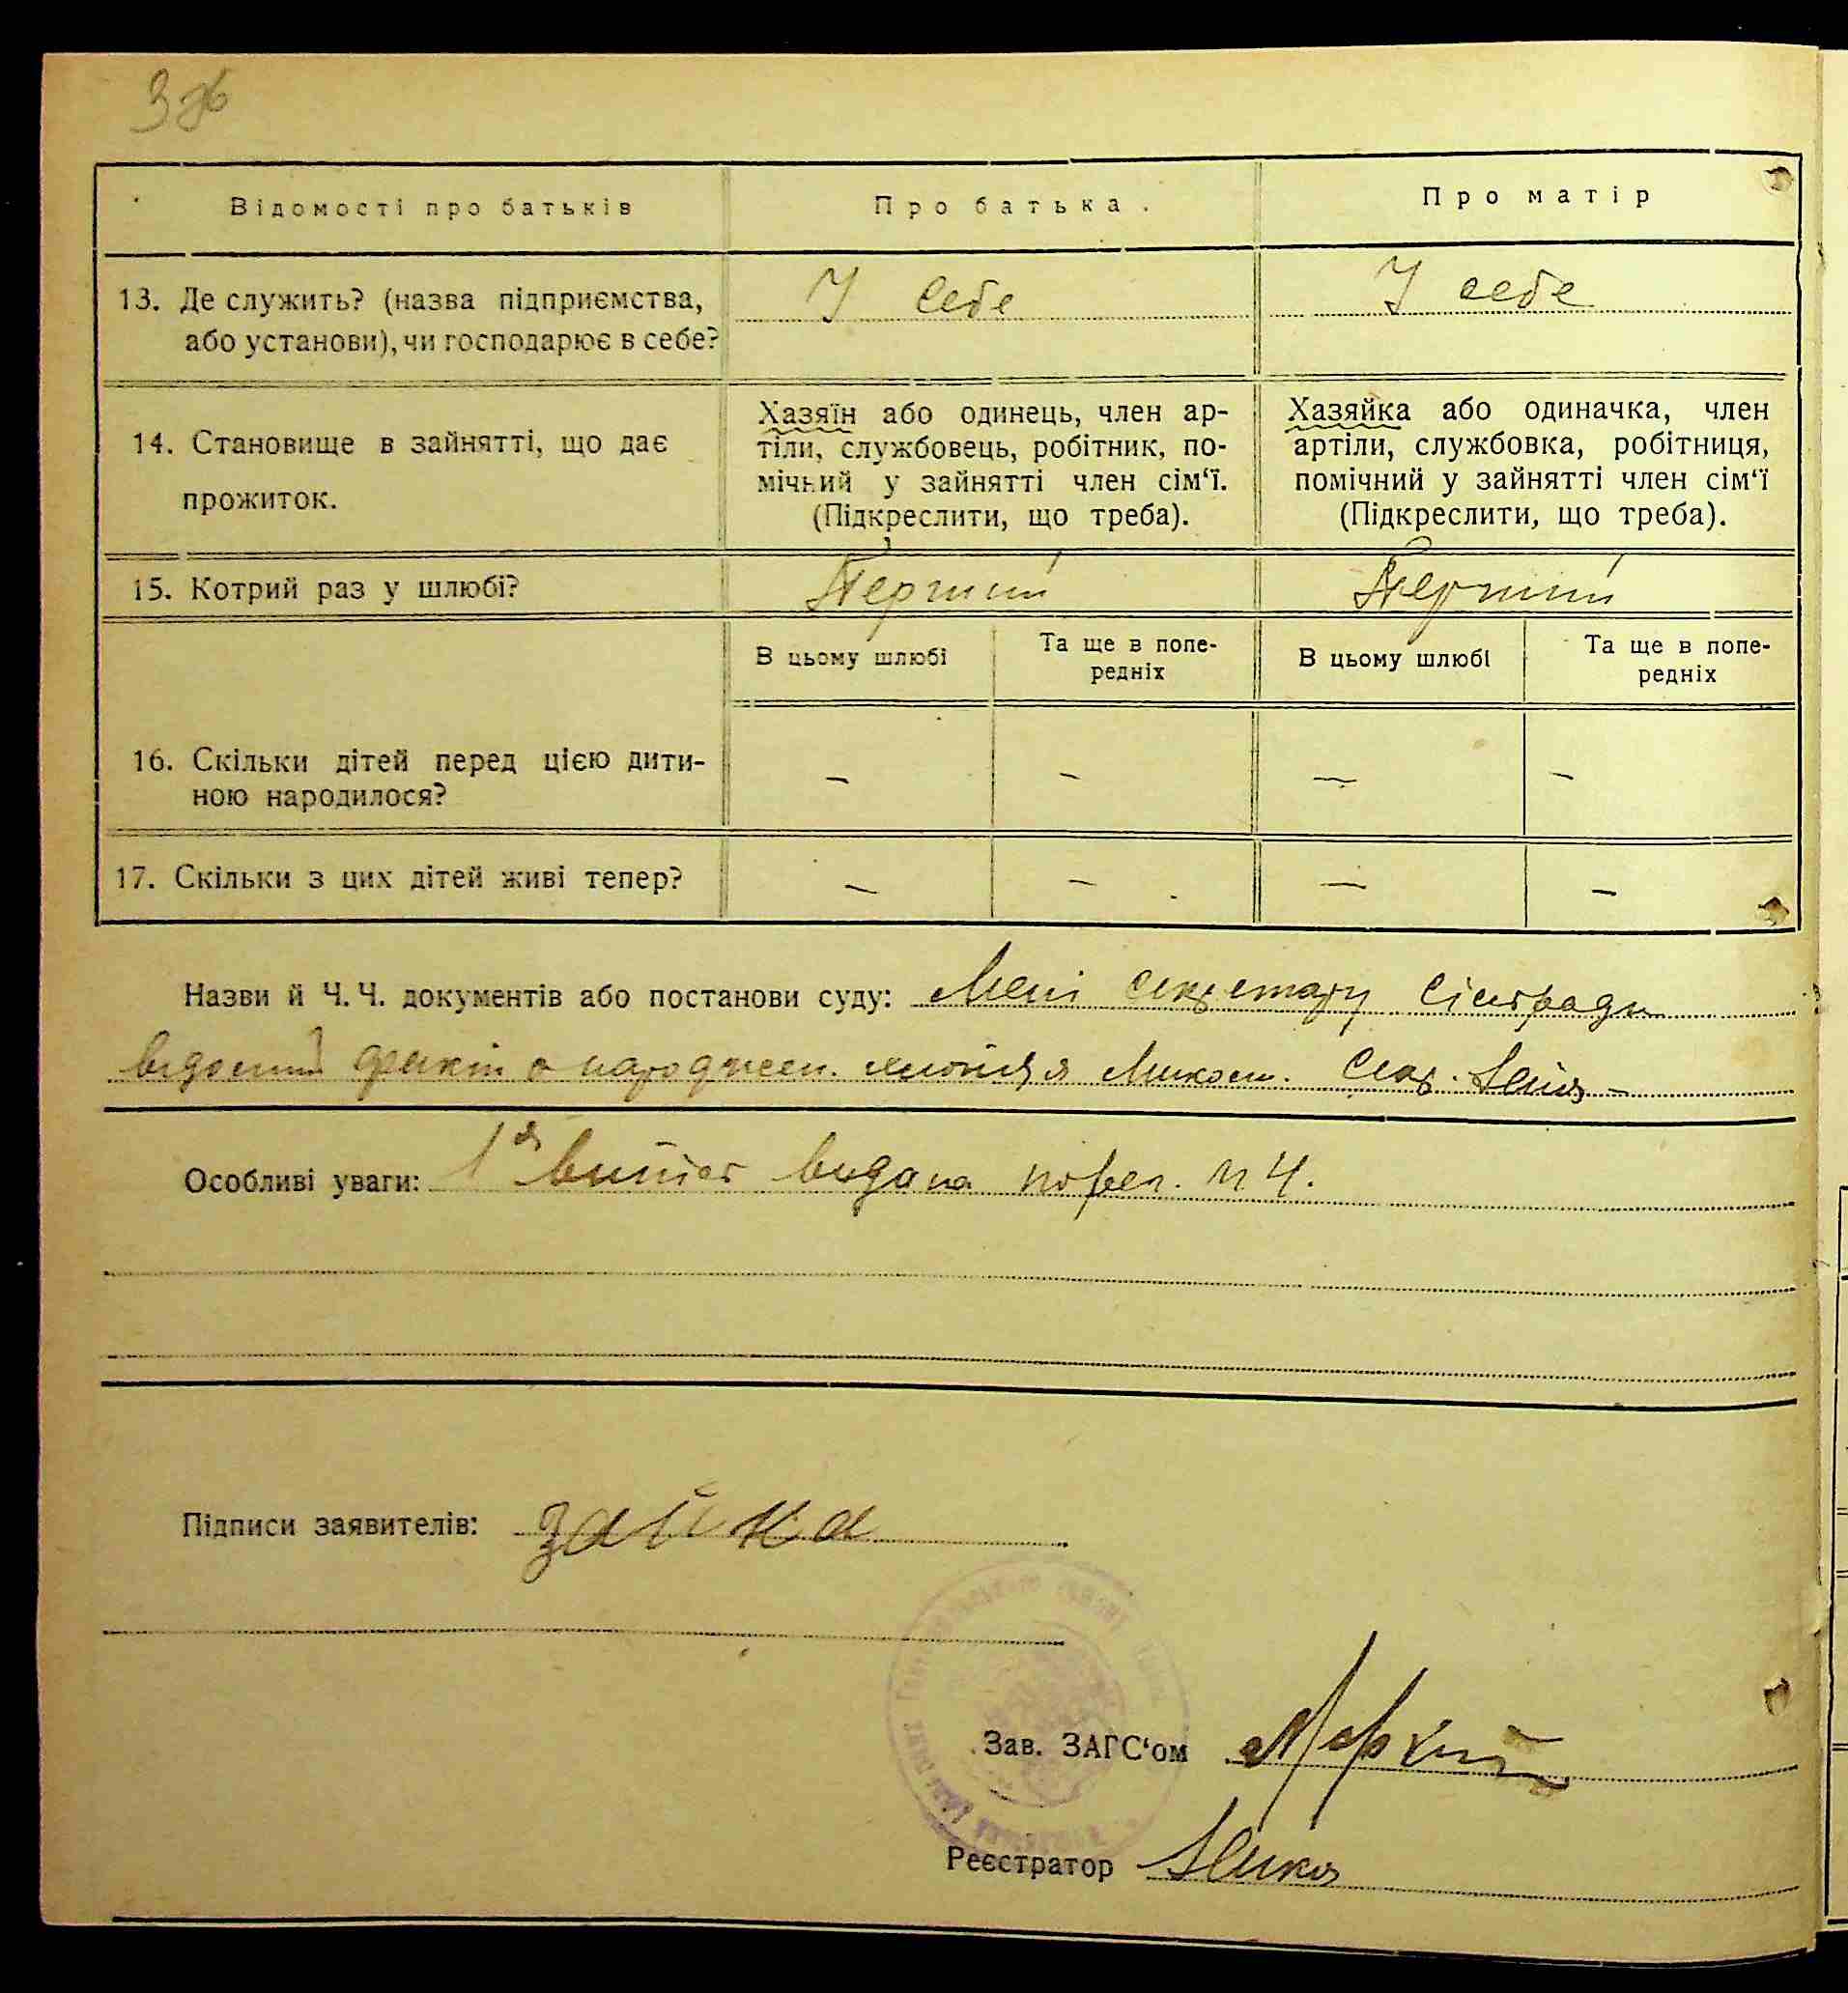 3зв
Відомості про батьків
Про батька.
Про матір
13. Де служить? (назва підприємства,
або установи), чи господарює в себе?
У себе
У себе
14. Становище в зайнятті, що дає
прожиток.
Хазяїн або одинець, член ар-
тіли, службовець, робітник, по-
мічний у зайнятті член сім‘ї.
(Підкреслити, що треба).
Хазяйка або одиначка, член
артіли, службовка, робітниця,
помічний у зайнятті член сім‘ї
(Підкреслити, що треба).
15. Котрий раз у шлюбі?
Перший
Перший
В цьому шлюбі
Та ще в попе-
редніх
В цьому шлюбі
Та ще в попе-
редніх
16. Скільки дітей перед цією дити-
ною народилося?
–
–
–
–
17. Скільки з цих дітей живі тепер?
–
–
–
–
Назви й Ч. Ч. документів або постанови суду: Мені секретарю сільради
відомий факт о народжен. хлопця Микол. Секр.
Особливі уваги: видана по реєс. N 4.
Підписи заявителів: зайка
Зав. ЗАГС‘ом
Реєстратор